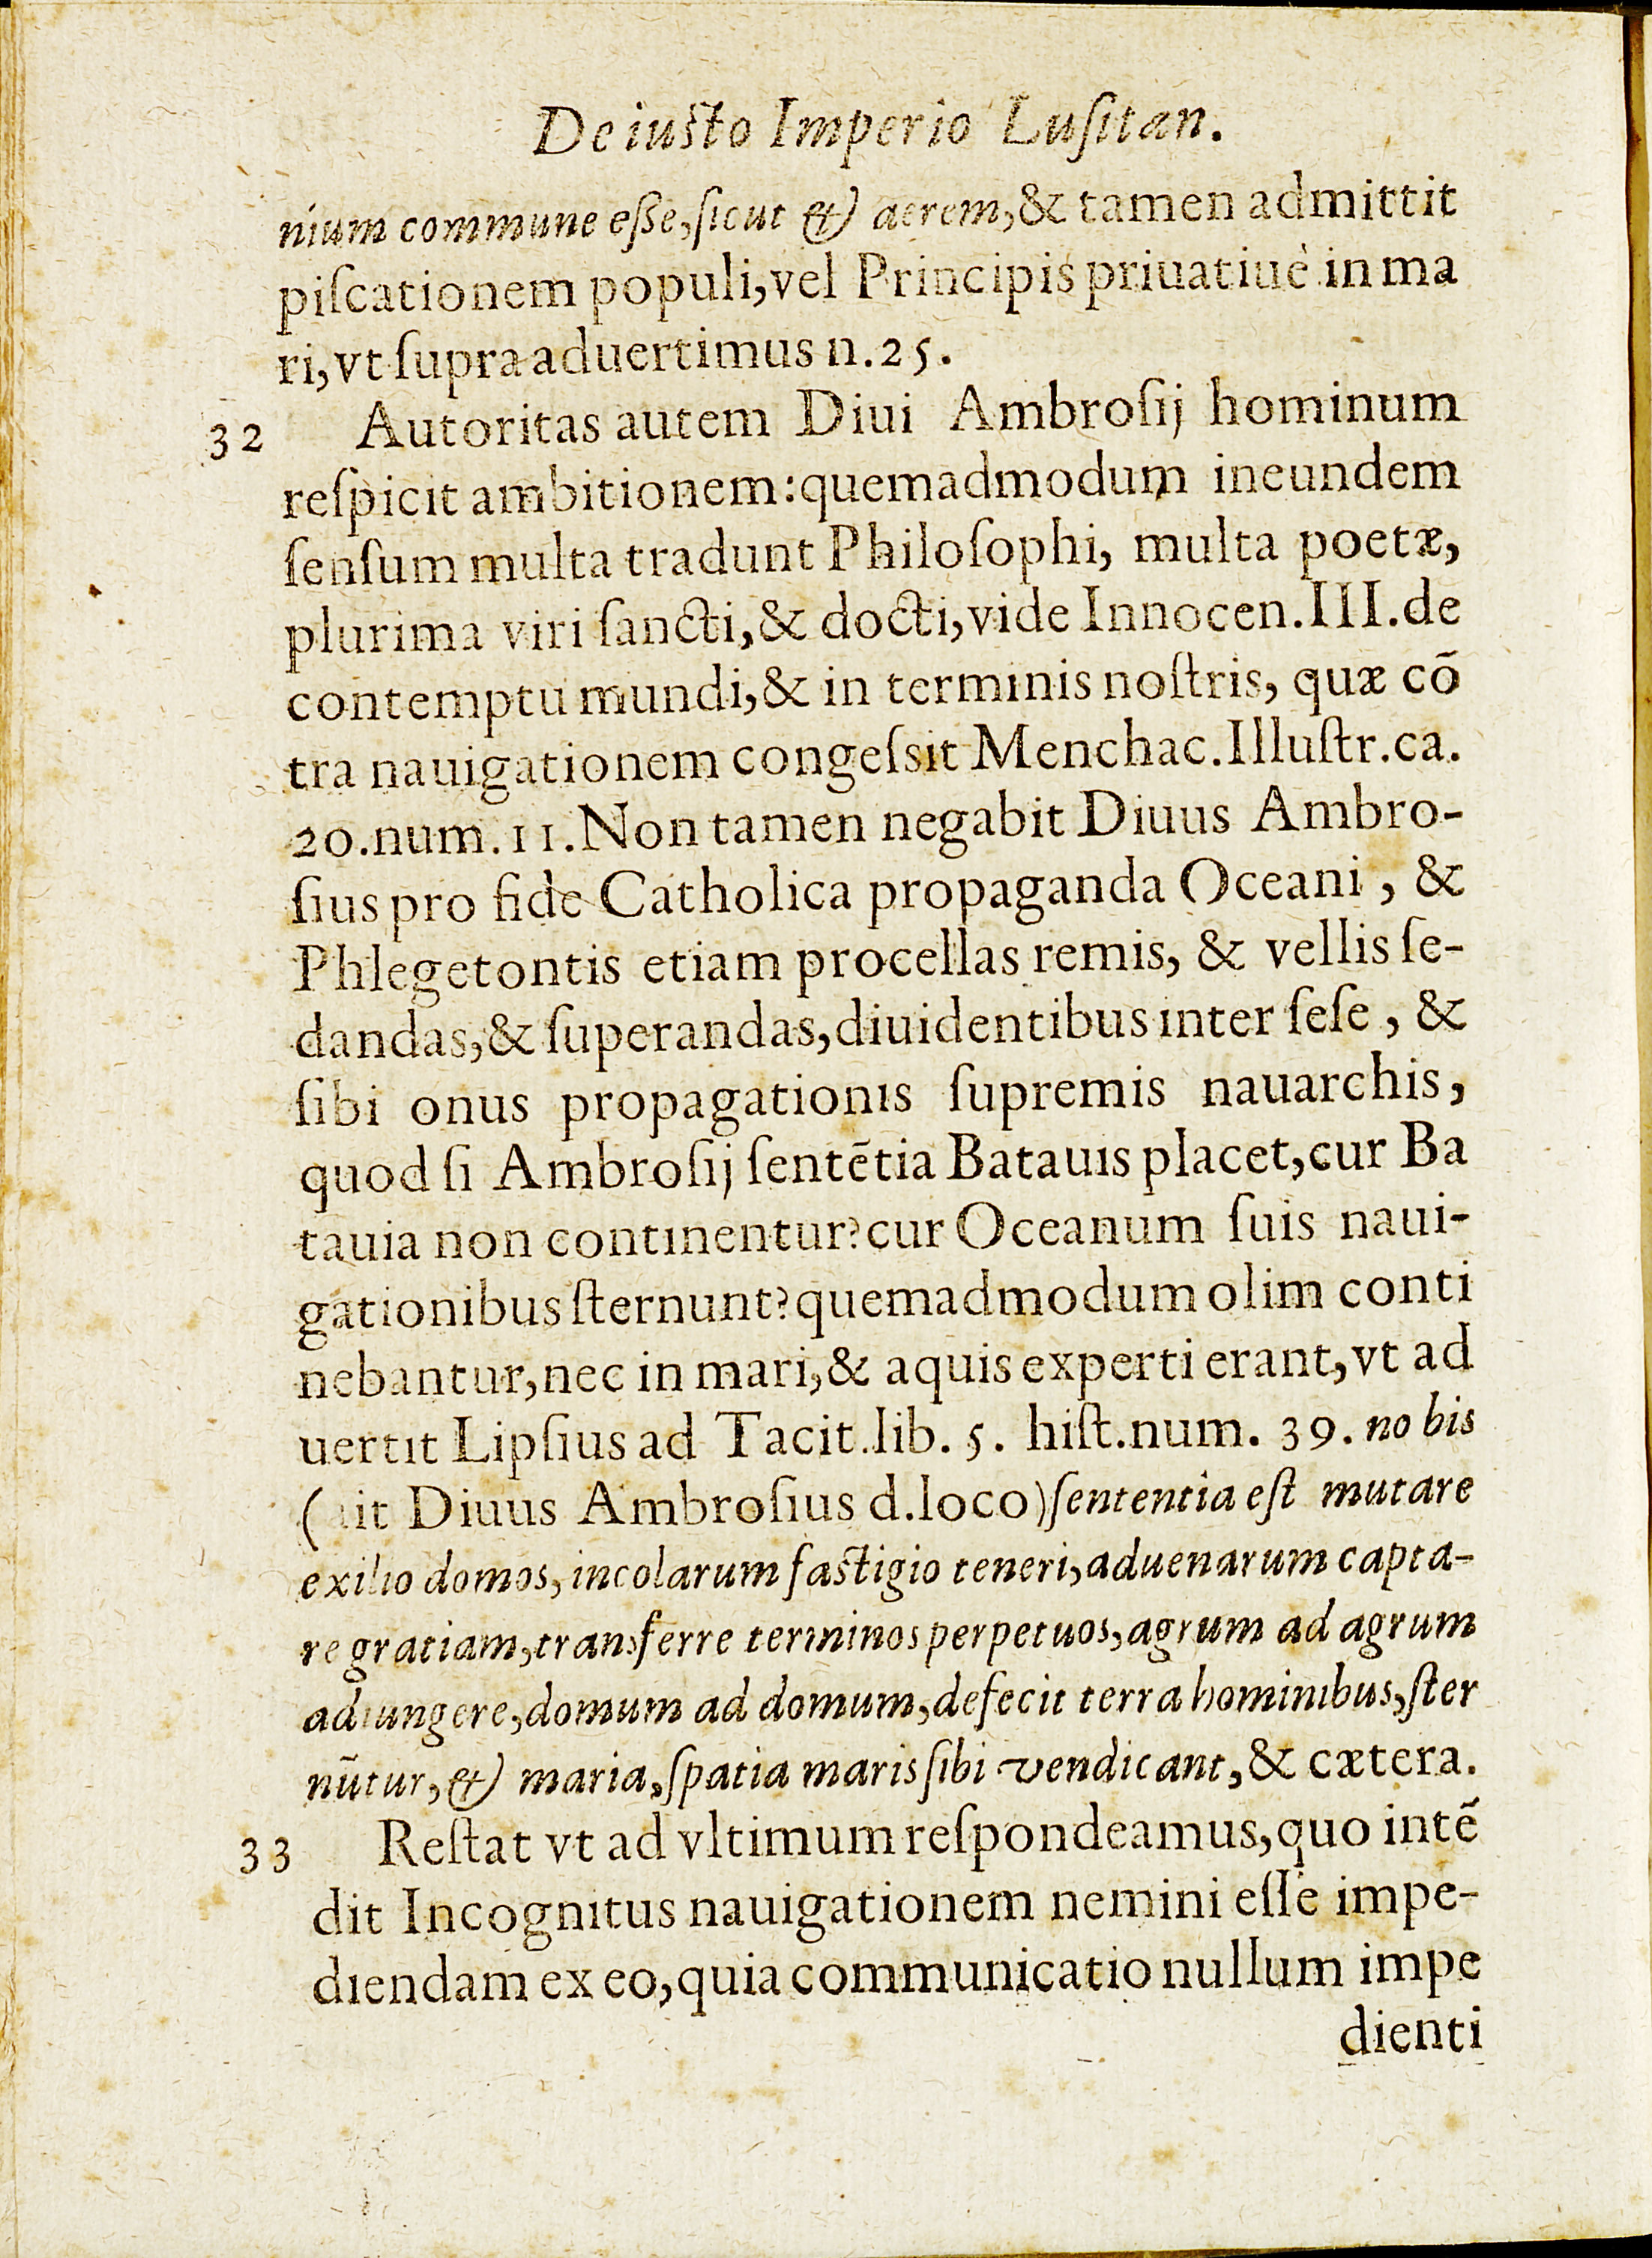 De iusto Imperio Lusitan.
nium commune eſſe, ſicut & aerem, & tamen admittit
piſcationem populi, vel Principis priuatiuè in ma
ri, vt ſupra aduertimus n. 25.
32 Autoritas autem Diui Ambroſij hominum
reſpicit ambitionem: quemadmodum in eundem
ſenſum multa tradunt Philoſophi, multa poetæ,
plurima viri ſancti, & docti, vide Innocen. III. de
contemptu mundi, & in terminis noſtris, quæ cõ
tra nauigationem congeſsit Menchac. Illuſtr. ca.
20. num. 11. Non tamen negabit Diuus Ambro-
ſius pro fide Catholica propaganda Oceani, &
Phlegetontis etiam procellas remis, & vellis ſe-
dandas, & ſuperandas, diuidentibus inter ſeſe, &
ſibi onus propagationis ſupremis nauarchis,
quod ſi Ambroſij ſentẽtia Batauis placet, cur Ba
tauia non continentur? cur Oceanum ſuis naui-
gationibus ſternunt? quemadmodum olim conti
nebantur, nec in mari, & aquis experti erant, vt ad
uertit Lipſius ad Tacit. lib. 5. hiſt. num. 39. nobis
(ait Diuus Ambroſius d. loco) ſententia eſt mutare
exilio domos, incolarum faſtigio teneri, aduenarum capta-
re gratiam, transferre terminos perpetuos, agrum ad agrum
adiungere, domum ad domum, defecit terra hominibus, ſter
nũtur, & maria, ſpatia maris ſibi vendicant, & cætera.
33 Reſtat vt ad vltimum reſpondeamus, quo intẽ
dit Incognitus nauigationem nemini eſſe impe-
diendam ex eo, quia communicatio nullum impe
dienti